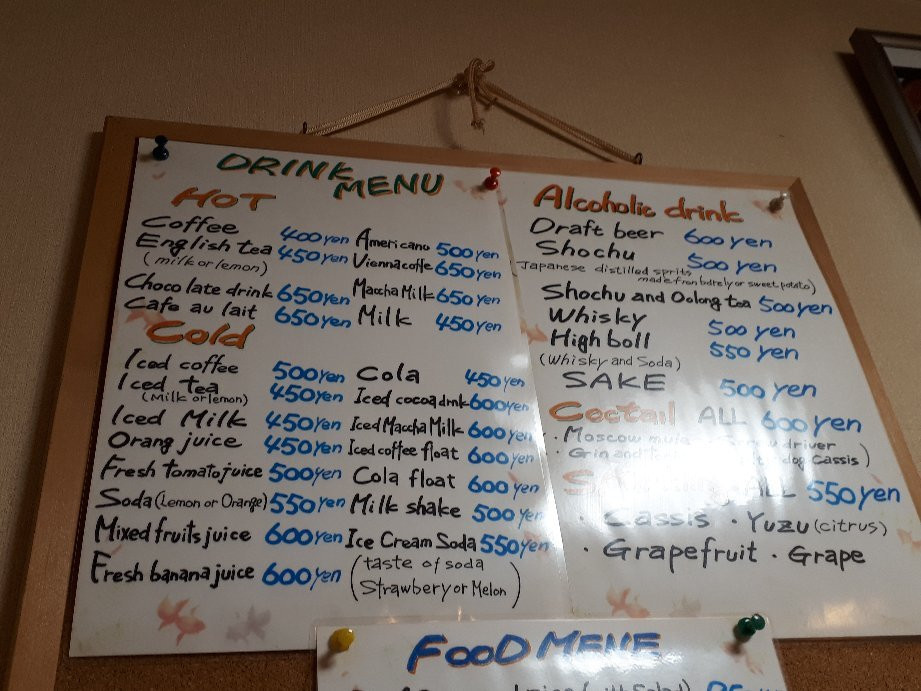 DRINK MENU
HOT
Coffee 400yen
English tea 450yen
(milk or lemon)
Chocolate drink 650yen
Cafe au lait 650yen
Americano 500yen
Vienna coffe 650yen
Maccha Milk 650yen
Milk 450yen
Cold
Iced coffee 500yen
Iced tea 450yen
(Milk or lemon)
Iced Milk 450yen
Orang juice 450yen
Fresh tomato juice 500yen
Soda (Lemon or Orange) 550yen
Mixed fruits juice 600yen
Fresh banana juice 600yen
Cola 450yen
Iced cocoa drnk 600yen
Iced Maccha Milk 600yen
Iced coffee float 600yen
Cola float 600yen
Milk shake 500yen
Ice Cream Soda 550yen
(taste of soda
Strawbery or Melon)
Alcoholic drink
Draft beer 600yen
Shochu 500yen
Japanese distilled sprits
made from barely or sweet potato)
Shochu and Oolong tea 500yen
Whisky 500yen
High boll 550yen
(Whisky and Soda)
SAKE 500yen
Coctail ALL 600yen
・Moscow mule driver
・Grin and dog Cassis)
ALL 550yen
・Cassis ・Yuzu (citrus)
・Grapefruit ・Grape
FOOD MENE